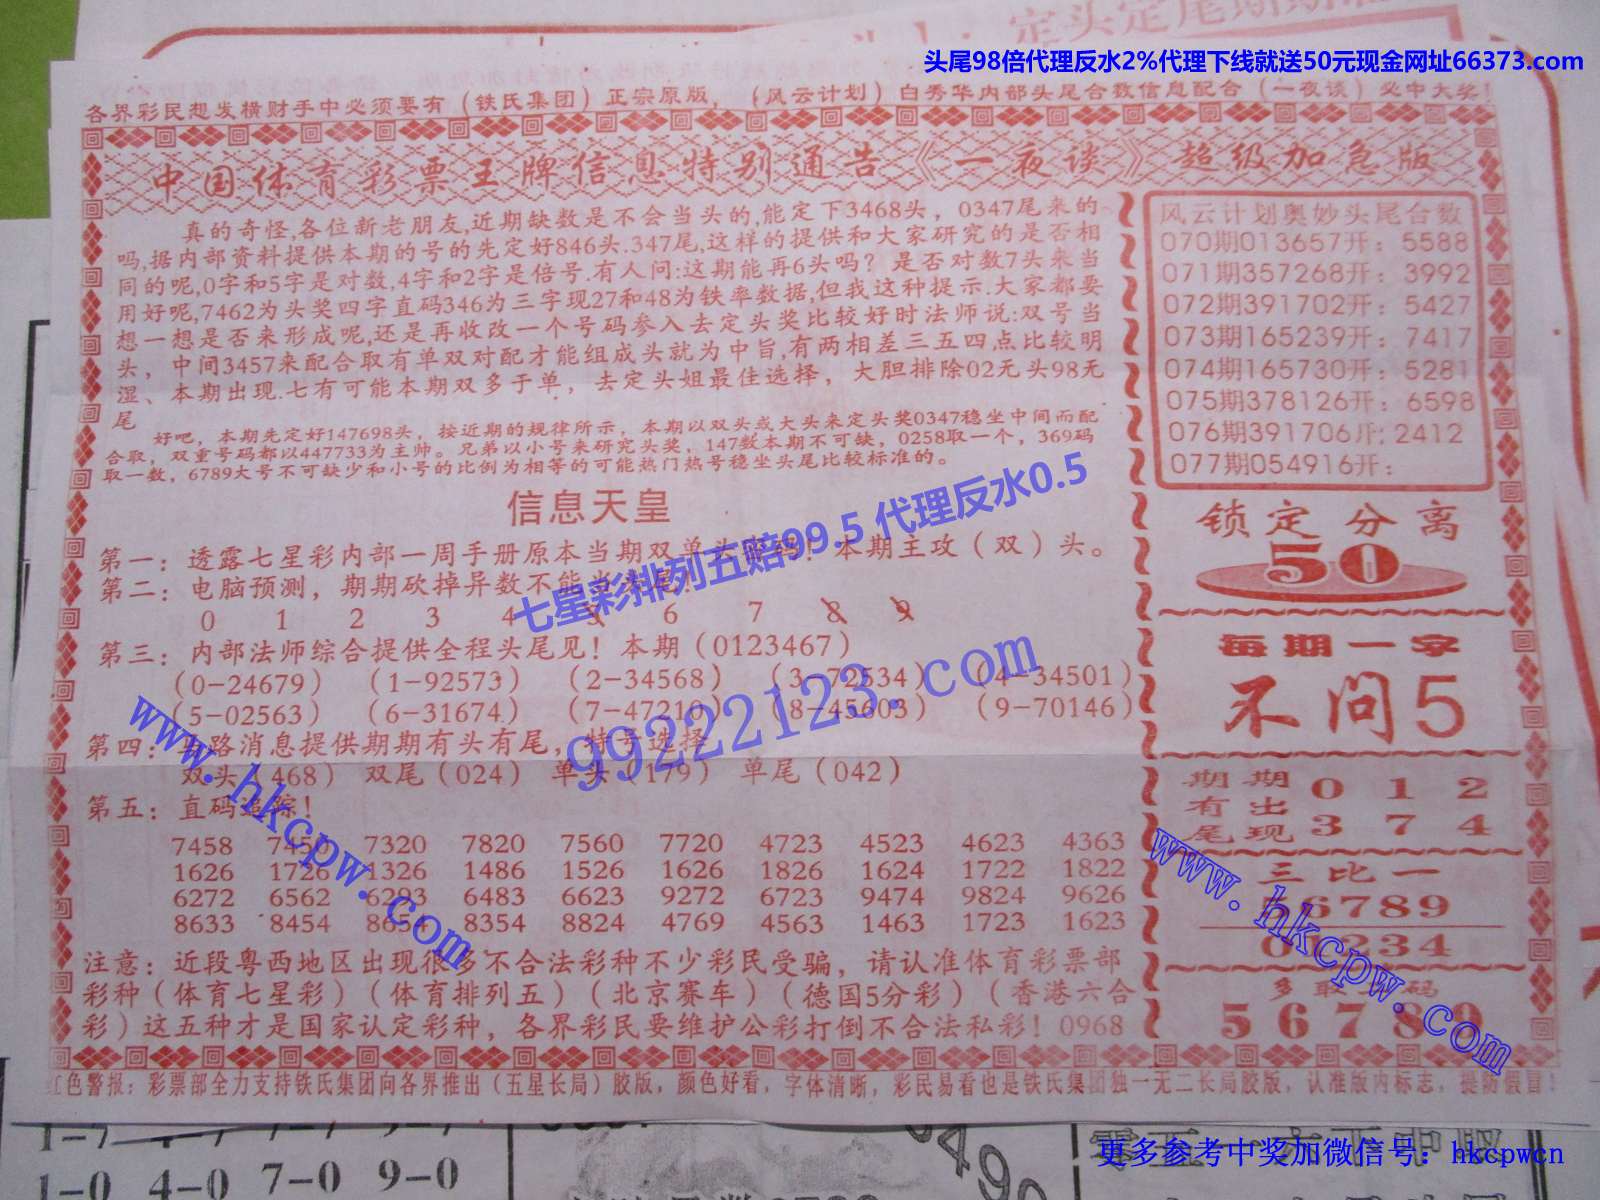 头尾98倍代理反水2%代理下线就送50元现金网址66373.com
各界彩民想发横财手中必须要有（铁氏集团）正宗原版，（风云计划）白秀华内部头尾合数信息配合（一夜谈）必中大奖！
中国体育彩票王牌信息特别通告《一夜谈》超级加急版
真的奇怪,各位新老朋友,近期缺数是不会当头的,能定下3468头，0347尾来的
吗,据内部资料提供本期的号的先定好846头.347尾,这样的提供和大家研究的是否相
同的呢,0字和5字是对数,4字和2字是倍号.有人问:这期能再6头吗？是否对数7头来当
用好呢,7462为头奖四字直码346为三字现27和48为铁率数据,但我这种提示.大家都要
想一想是否来形成呢,还是再收改一个号码参入去定头奖比较好时法师说:双号当
头，中间3457来配合取有单双对配才能组成头就为中旨,有两相差三五四点比较明
湿、本期出现.七有可能本期双多于单，去定头姐最佳选择，大胆排除02元头98元
尾
好吧，本期先定好147698头，接近期的规律所示，本期以双头或大头来定头奖0347稳坐中间而配
合取，双重号码都以447733为主帅。兄弟以小号来研究头奖，147数本期不可缺，0258取一个，369码
取一数，6789大号不可缺少和小号的比例为相等的可能热门热号稳坐头尾比较标准的。
信息天皇
第一：透露七星彩内部一周手册原本当期双单头 码！本期主攻（双）头。
第二：电脑预测，期期砍掉异数不能当头尾！
0 1 2 3 4 5 6 7 8 9
第三：内部法师综合提供全程头尾见！本期（0123467）
（0-24679）（1-92573）（2-34568）（3-72534）（4-34501）
（5-02563）（6-31674）（7-47210）（8-45603）（9-70146）
第四：马路消息提供期期有头有尾，特号选择
双头（468） 双尾（024） 单头（179） 单尾（042）
第五：直码追踪！
7458 7450 7320 7820 7560 7720 4723 4523 4623 4363
1626 1726 1326 1486 1526 1626 1826 1624 1722 1822
6272 6562 6293 6483 6623 9272 6723 9474 9824 9626
8633 8454 8654 8354 8824 4769 4563 1463 1723 1623
注意：近段粤西地区出现很多不合法彩种不少彩民受骗，请认准体育彩票部
彩种（体育七星彩）（体育排列五）（北京赛车）（德国5分彩）（香港六合
彩）这五种才是国家认定彩种，各界彩民要维护公彩打倒不合法私彩！0968
风云计划奥妙头尾合数
070期013657开：5588
071期357268开：3992
072期391702开：5427
073期165239开：7417
074期165730开：5281
075期378126开：6598
076期391706开：2412
077期054916开：
锁定分离
50
每期一字
不问5
期期 0 1 2
有出
尾现 3 7 4
三比一
56789
01234
多取 码
56789
红色警报：彩票部全力支持铁氏集团向各界推出（五星长局）胶版，颜色好看，字体清晰，彩民易看也是铁氏集团独一无二长局胶版，认准版内标志，提防假冒！
七星彩排列五赔99.5 代理反水0.5
99222123.com
www.hkcpw.com
www.hkcpw.com
1-7 4-7 7-7 9-7
1-0 4-0 7-0 9-0
更多参考中奖加微信号：hkcpwcn